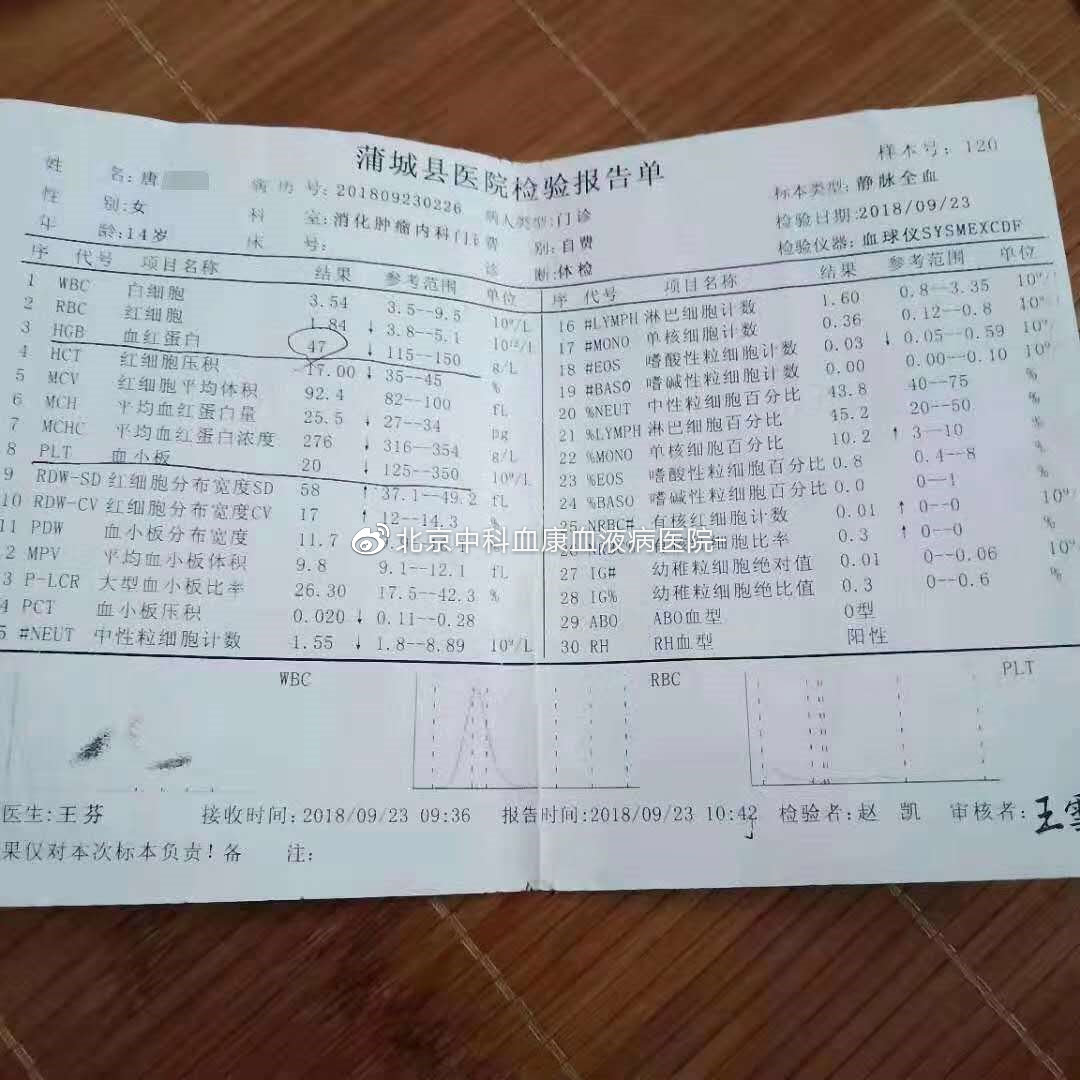 蒲城县医院检验报告单
样本号：120
姓 名：唐 病历号：201809230226 病人类型：门诊 标本类型：静脉全血
性 别：女 科 室：消化肿瘤内科门诊 费 别：自费 检验日期：2018/09/23
年 龄：14岁 床 号： 诊 断：体检 检验仪器：血球仪SYSMEXCDF
序 代号 项目名称 结果 参考范围 单位
1 WBC 白细胞 3.54 3.5--9.5 10⁹/L
2 RBC 红细胞 1.84 ↓ 3.8--5.1 10¹²/L
3 HGB 血红蛋白 47 ↓ 115--150 g/L
4 HCT 红细胞压积 17.00 ↓ 35--45 %
5 MCV 红细胞平均体积 92.4 82--100 fL
6 MCH 平均血红蛋白量 25.5 ↓ 27--34 pg
7 MCHC 平均血红蛋白浓度 276 ↓ 316--354 g/L
8 PLT 血小板 20 ↓ 125--350 10⁹/L
9 RDW-SD 红细胞分布宽度SD 58 ↑ 37.1--49.2 fL
10 RDW-CV 红细胞分布宽度CV 17 ↑ 12--14.3 %
11 PDW 血小板分布宽度 11.7
2 MPV 平均血小板体积 9.8 9.1--12.1 fL
3 P-LCR 大型血小板比率 26.30 17.5--42.3 %
4 PCT 血小板压积 0.020 ↓ 0.11--0.28
5 #NEUT 中性粒细胞计数 1.55 ↓ 1.8--8.89 10⁹/L
序 代号 项目名称 结果 参考范围 单位
16 #LYMPH 淋巴细胞计数 1.60 0.8--3.35 10⁹
17 #MONO 单核细胞计数 0.36 0.12--0.8 10⁹
18 #EOS 嗜酸性粒细胞计数 0.03 ↓ 0.05--0.59 10⁹
19 #BASO 嗜碱性粒细胞计数 0.00 0.00--0.10 10⁹
20 %NEUT 中性粒细胞百分比 43.8 40--75 %
21 %LYMPH 淋巴细胞百分比 45.2 20--50 %
22 %MONO 单核细胞百分比 10.2 ↑ 3--10 %
23 %EOS 嗜酸性粒细胞百分比 0.8 0.4--8 %
24 %BASO 嗜碱性粒细胞百分比 0.0 0--1 %
25 NRBC# 有核红细胞计数 0.01 ↑ 0--0 10⁹
细胞比率 0.3 ↑ 0--0 %
27 IG# 幼稚粒细胞绝对值 0.01 0--0.06 10⁹
28 IG% 幼稚粒细胞绝比值 0.3 0--0.6 %
29 ABO ABO血型 O型
30 RH RH血型 阳性
北京中科血康血液病医院-
WBC RBC PLT
医生：王芬 接收时间：2018/09/23 09:36 报告时间：2018/09/23 10:42 检验者：赵 凯 审核者：王
果仅对本次标本负责！备 注：